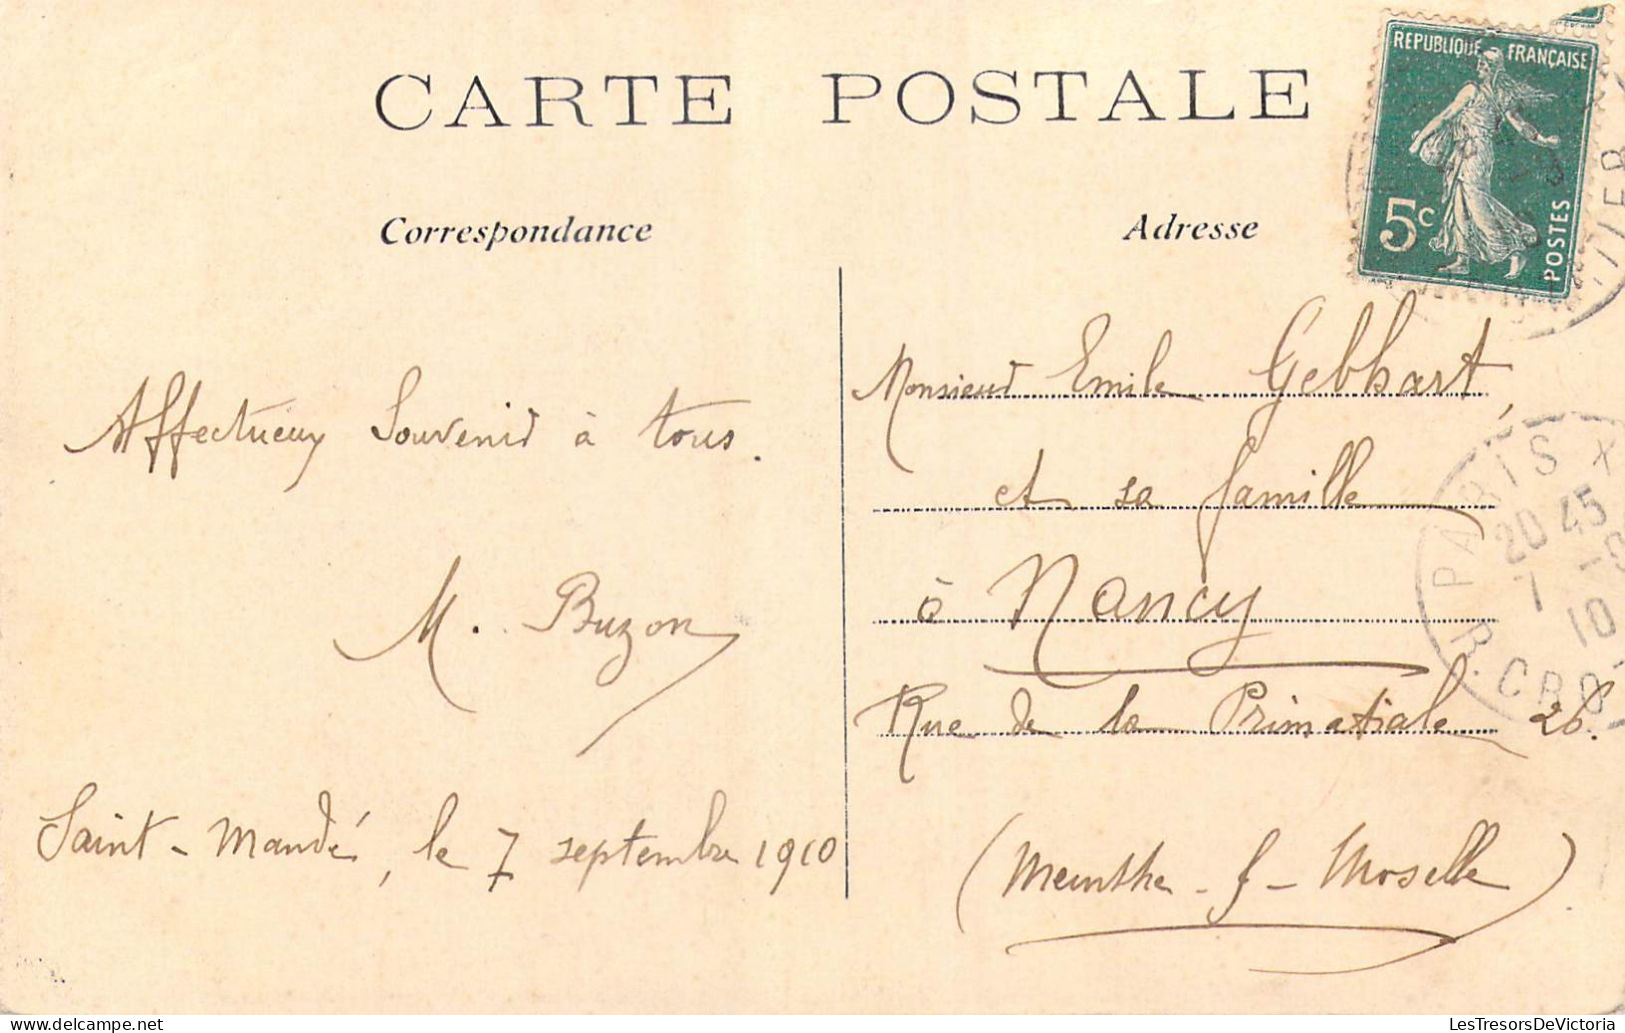 CARTE POSTALE
Correspondance
Affectueux Souvenir à tous.
M. Buzon
Saint-Mandé, le 7 septembre 1910
Adresse
REPUBLIQUE FRANÇAISE
5c
POSTES
Monsieur Emile Gebhart,
et sa famille
à Nancy
Rue de la Primatiale 26.
(Meurthe-&-Moselle)
PARIS X
20 45
7 -9
10
R. CRO
LesTresorsDeVictoria